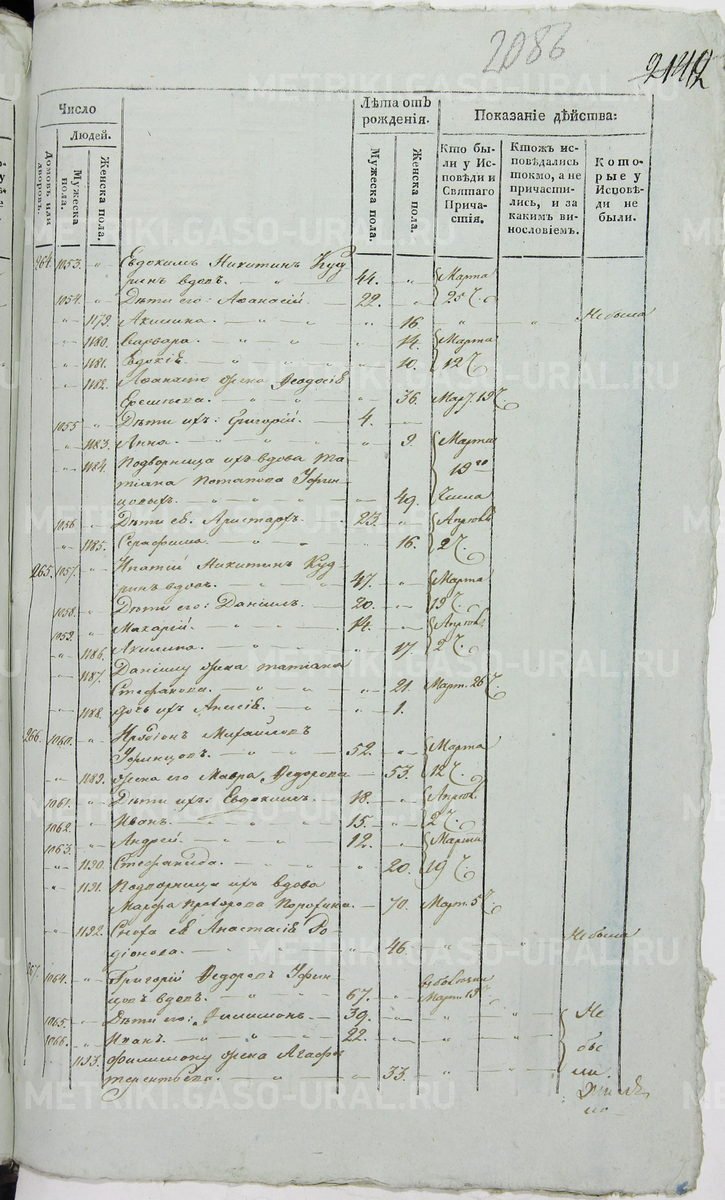 2086
Число
Людей.
Домовъ или дворовъ.
Мужеска пола.
Женска пола.
Лѣта отъ рожденія.
Мужеска пола.
Женска пола.
Показаніе дѣйства:
Кто бы-
ли у Ис-
повѣди и
Святаго
Прича-
стія.
Ктожъ ис-
повѣдались
токмо, а не
причасти-
лись, и за
какимъ ви-
нословіемъ.
Кото-
рые у
Исповѣ-
ди не
были.
264. 1053. „ Евдокимъ Никитинъ Куд
ринъ вдовъ. 44. „ Марта
1054. „ Дѣти его: Афанасій. 22. „ 25 Ч.
„ 1179. Акилина. „ 16. „ „ Небыла
„ 1180. Варвара. „ 14. Марта
„ 1181. Евдокія. „ 10. 12 Ч.
„ 1182. Афанасію жена Феодосія
„ 36. Мар. 19 Ч.
1055 „ Дѣти ихъ: Григорій. 4. „
„ 1183. Анна. „ 9. Марта
„ 1184. Подворница ихъ вдова Та-
тіана Потапова 19
„ 49. Числа
1056. „ Дѣти ея: Аристархъ. 23. „ Апрѣля
„ 1185. Серафима. „ 16. 2 Ч.
265. 1057. „ Ипатій Никитинъ Куд
ринъ вдовъ. 47. „ Марта
1058. „ Дѣти его: Даніилъ. 20. „ 19 Ч.
1059. „ Макарій. 14. „ Апрѣля
„ 1186. Акилина. „ 17. 2 Ч.
„ 1187. Даніилу жена Татіана
Стефанова. „ 21. Март. 26 Ч.
„ 1188. дочь ихъ Анисія. „ 1.
266. 1060. „ Иродіонъ Михайловъ
52. „ Марта
„ 1189. Жена его Мавра Федорова „ 53. 12 Ч.
1061. „ Дѣти ихъ: Евдокимъ. 18. „ Апрѣл.
1062. „ Иванъ. 15. „ 2 Ч.
1063. „ Андрей. 12. „ Марта
„ 1190. Стефанида. „ 20. 19 Ч.
„ 1191. Подворница ихъ вдова
Марфа „ 70. Март. 5 Ч.
„ 1192. Сноха ея Анастасія Ро-
діонова. „ 46. „ „ Небыла
267. 1064. „ Григорій Федоровъ
вдовъ. 67. „ Март. 19
1065. „ Дѣти его: Филимонъ. 39. „ „ „ Не
1066. „ Иванъ. 22. „ „ „
„ 1193. Филимону жена Агафія
Терентьева. „ 33. „ „